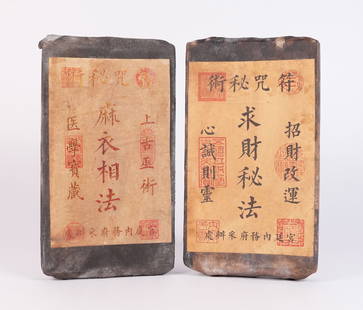 符咒秘術
上古巫術
麻衣相法
医學寶藏
宮廷內務府采辦處
符咒秘術
招財改運
求財秘法
心誠則靈
宮廷內務府采辦處